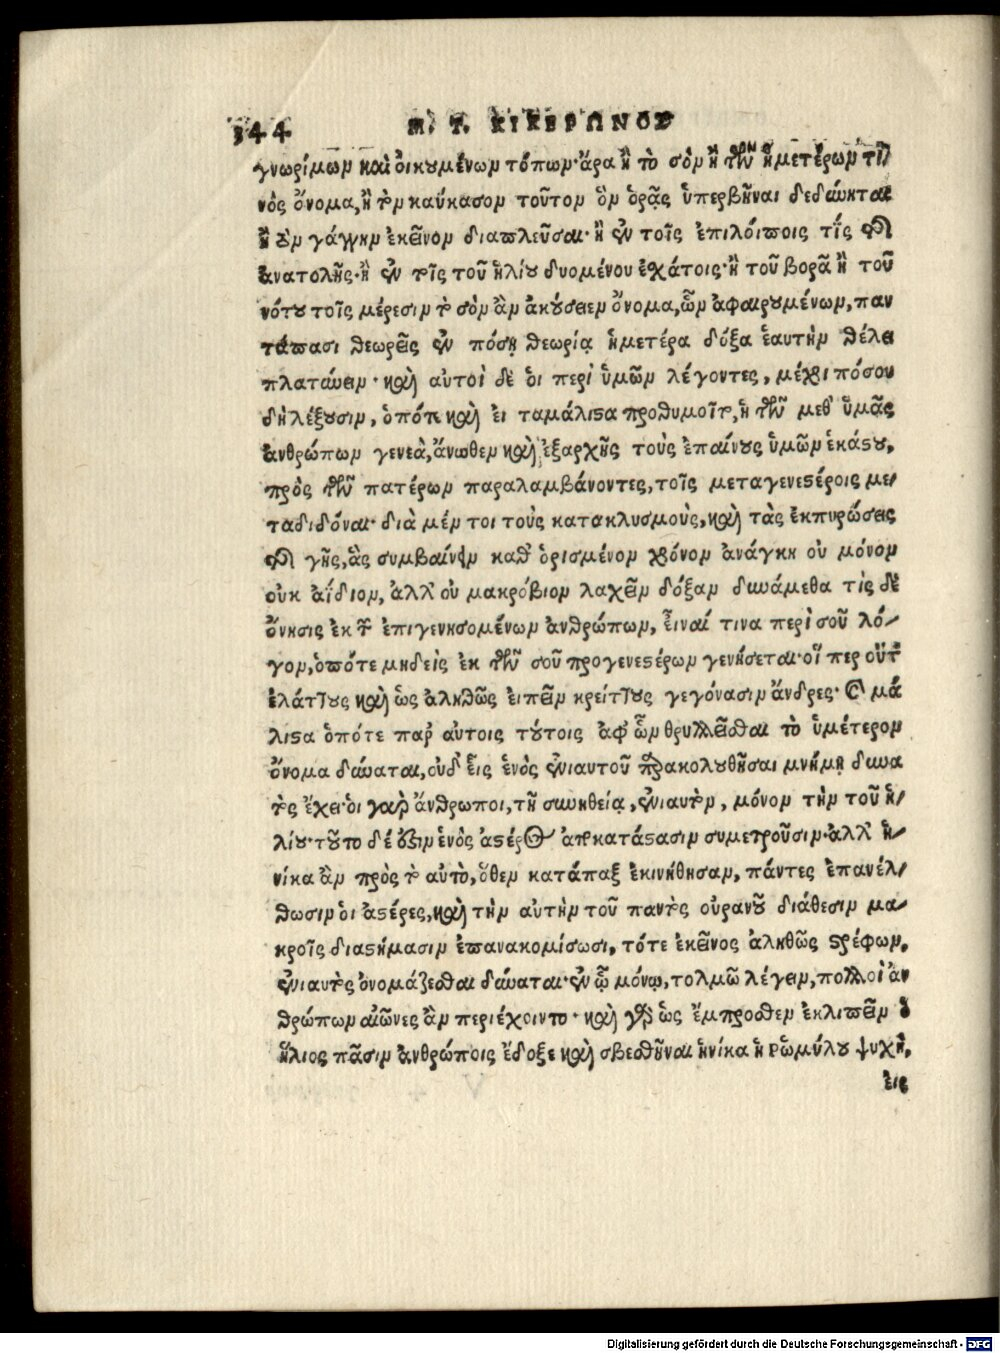 344 Μ. Τ. ΚΙΚΕΡΩΝΟΣ
γνωρίμων καὶ οἰκουμένων τόπων· ἄρα ἢ τὸ σὸν ἢ τῶν ἡμετέρων τι/
νὸς ὄνομα, ἢ τὸν καύκασον τοῦτον ὃν ὁρᾷς ὑπερβῆναι δεδύνηται
ἢ τὸν γάγγην ἐκεῖνον διαπλεῦσαι· ἢ ἐν τοῖς ἐπιλοίποις τίς τῆς
ἀνατολῆς· ἢ ἐν τοῖς τοῦ ἡλίου δυομένου ἐχάτοις· ἢ τοῦ βορᾶ ἢ τοῦ
νότου τοῖς μέρεσιν τὸ σὸν ἂν ἀκούσειεν ὄνομα, ὧν ἀφαιρουμένων, παν
τάπασι θεωρεῖς ἐν πόσῃ θεωρίᾳ ἡμετέρα δόξα ἑαυτὴν θέλει
πλατύνειν· καὶ αὐτοὶ δὲ οἱ περὶ ὑμῶν λέγοντες, μέχρι πόσου
δὴ λέξουσιν, ὁπότε καὶ εἰ ταμάλιστα προθυμοῖτο, ἡ τῶν μεθ' ὑμᾶς
ἀνθρώπων γενεὰ, ἄνωθεν καὶ ἐξαρχῆς τοὺς ἐπαίνους ὑμῶν ἑκάστου,
πρὸς τῶν πατέρων παραλαμβάνοντες, τοῖς μεταγενεστέροις με/
ταδιδόναι· διὰ μέν τοι τοὺς κατακλυσμοὺς, καὶ τὰς ἐκπυρώσεις
τῆς γῆς, ἃς συμβαίνειν καθ' ὁρισμένον χρόνον ἀνάγκη οὐ μόνον
οὐκ ἀΐδιον, ἀλλ' οὐ μακρόβιον λαχεῖν δόξαν δυνάμεθα τίς δὲ
ὄνησις ἐκ τῶν ἐπιγενησομένων ἀνθρώπων, εἶναί τινα περὶ σοῦ λό/
γον, ὁπότε μηδεὶς ἐκ τῶν σοῦ προγενεστέρων γενήσεται· οἵ περ οὔτ'
ἐλάττους καὶ ὡς ἀληθῶς εἰπεῖν κρείττους γεγόνασιν ἄνδρες· καὶ μά
λιστα ὁπότε παρ' αὐτοις τούτοις ἀφ' ὧν θρυλλεῖσθαι τὸ ὑμέτερον
ὄνομα δύναται, οὐδ' εἷς ἑνὸς ἐνιαυτοῦ παρακολουθῆσαι μνήμῃ δυνα
τὸς ἔχει· οἱ γαρ ἄνθρωποι, τῇ συνηθείᾳ, ἐνιαυτὸν, μόνον τὴν τοῦ ἡ/
λίου· τοῦτο δέ ἐστιν ἑνὸς ἀστέρος ἀποκατάστασιν συμετροῦσιν· ἀλλ' ἡ/
νίκα ἂν πρὸς τὸ αὐτὸ, ὅθεν κατάπαξ ἐκινήθησαν, πάντες ἐπανέλ/
θωσιν οἱ ἀστέρες, καὶ τὴν αὐτὴν τοῦ παντὸς οὐρανοῦ διάθεσιν μα/
κροῖς διαστήμασιν ἐπανακομίσωσι, τότε ἐκεῖνος ἀληθῶς στρέφων,
ἐνιαυτὸς ὀνομάζεσθαι δύναται· ἐν ᾧ μόνῳ, τολμῶ λέγειν, πολλοὶ ἀν
θρώπων αἰῶνες ἂν περιέχοιντο· καὶ γὰρ ὡς ἔμπροσθεν ἐκλιπεῖν ὁ
ἥλιος πᾶσιν ἀνθρώποις ἔδοξε καὶ σβεσθῆναι ἡνίκα ἡ ῥωμύλου ψυχὴ,
εἰς
Digitalisierung gefördert durch die Deutsche Forschungsgemeinschaft - DFG